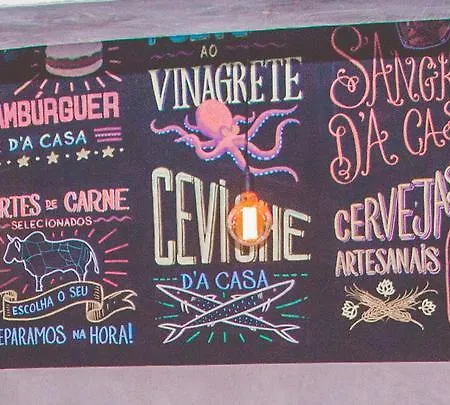 HAMBÚRGUER
D'A CASA
CORTES DE CARNE
SELECIONADOS
ESCOLHA O SEU
PREPARAMOS NA HORA!
AO
VINAGRETE
CEVICHE
D'A CASA
SANGRIA
D'A CASA
CERVEJAS
ARTESANAIS